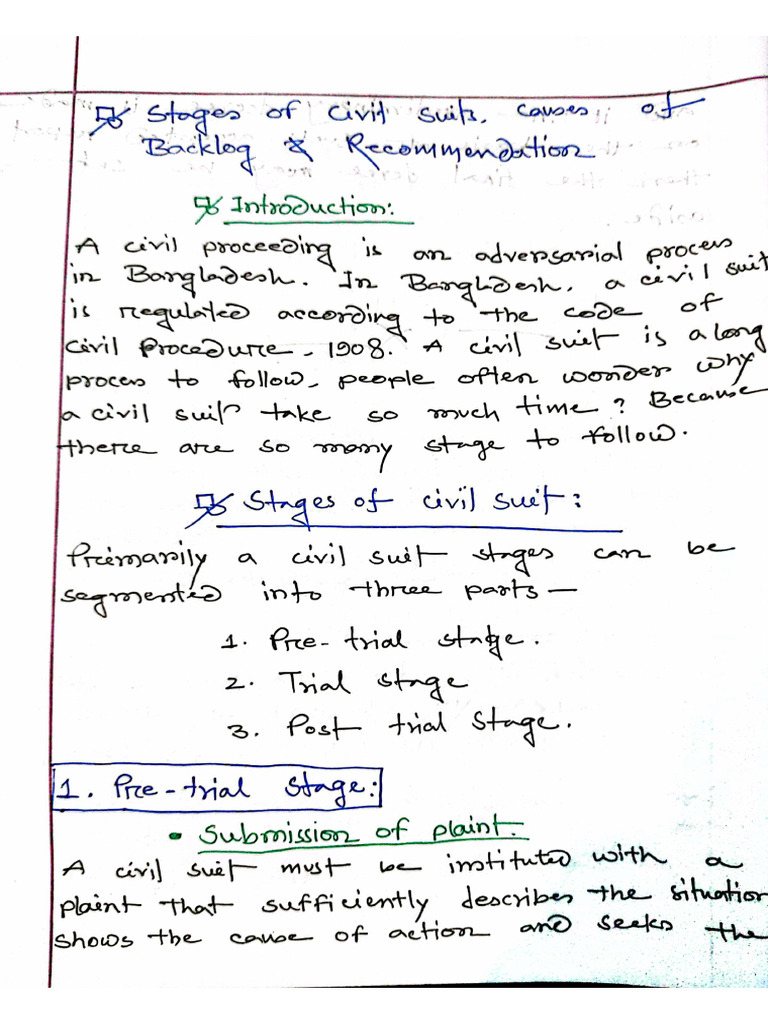 Stages of Civil Suits, causes of
Backlog & Recommendation
Introduction:
A civil proceeding is an adversarial process
in Bangladesh. In Bangladesh, a civil suit
is regulated according to the code of
Civil Procedure, 1908. A civil suit is a long
process to follow, people often wonder why
a civil suit take so much time? Because
there are so many stage to follow.
Stages of civil suit:
Primarily a civil suit stages can be
segmented into three parts—
1. Pre-trial stage.
2. Trial stage
3. Post trial stage.
1. Pre-trial stage:
• Submission of plaint.
A civil suit must be instituted with a
plaint that sufficiently describes the situation
shows the cause of action and seeks the